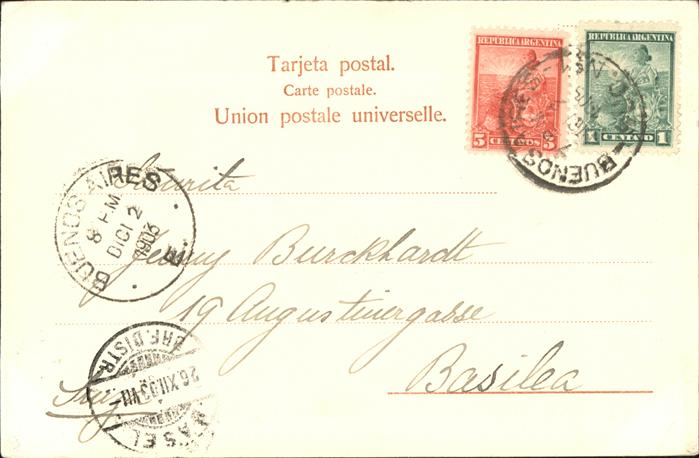 Tarjeta postal.
Carte postale.
Union postale universelle.
REPÚBLICA ARGENTINA
5 CENTAVOS 5
REPÚBLICA ARGENTINA
1 CENTAVO 1
BUENOS
BUENOS AIRES
8 P.M
DICI 2
1903
Señorita
Jenny Burckhardt
19 Augustinergasse
Basilea
BRF. DISTR.
26.XII.03.VII
BASEL